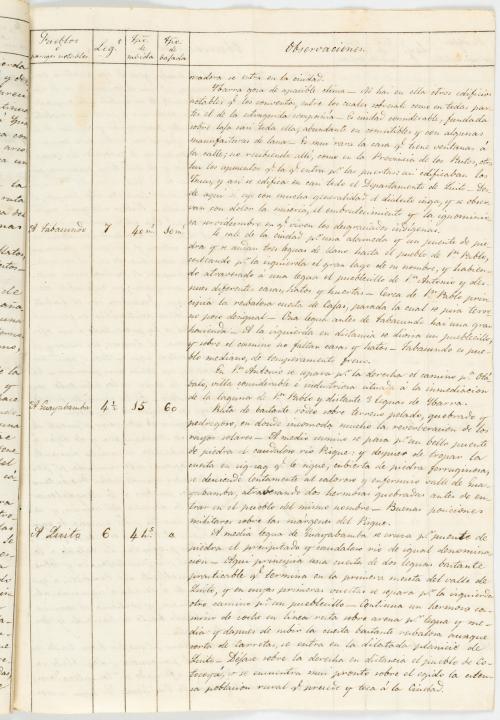 Pueblos y parages notables | Leg.s | Hor. de subida | Hor. de bajada | Observaciones
se entra en la ciudad.
Ybarra goza de apacible clima — No hai en ella otros edificios
notables q.e los conventos, entre los cuales sobresale como en todas par-
tes el de la estinguida compañia — Es ciudad considerable, fundada
sobre casi toda ella, abundante en comestibles y con algunas
manufacturas de lana — Es mui rara la casa q.e tiene ventanas á
la calle, no recibiendo alli, como en la Provincia de los Pastos, otra
luz los aposentos q.e la q.e entra p.r las puertas: asi edificaban los
Yncas, y asi se edifica en casi todo el Departamento de Quito — Des-
de aqui se oye con mucha generalidad el dialecto inga, y se obser-
van con dolor la miseria, el embrutecimiento y la ignominio-
sa servidumbre en q.e viven los degradados indígenas.
A Tabacundo | 7
Se sale de la ciudad p.r una alameda y un puente de pie-
dra y se andan tres leguas de llano hasta el pueblo de S.n Pablo,
costeando p.r la izquierda el gran lago de su nombre, y habien-
do atravesado á una legua el pueblecillo de S.n Antonio y des-
pues diferentes casas, hatos y huertas — Cerca de S.n Pablo prin-
cipia la resbalosa cuesta de Cajas, pasada la cual se pisa terre-
no poco desigual — Una legua antes de Tabacundo hai una gran
hacienda — A la izquierda en distancia se divisa un pueblecillo,
y sobre el camino no faltan casas y hatos — Tabacundo es pue-
blo mediano, de temperamento fresco.
En S.n Antonio se separa p.r la derecha el camino p.a Ota-
balo, villa considerable é industriosa situada á la inmediacion
de la laguna de S.n Pablo y distante 3 leguas de Ybarra.
A Guayabamba | 4½ | 15 | 60
Ruta de bastante rodeo sobre terreno pelado, quebrado y
pedregoso, en donde incomoda mucho la reverberacion de los
rayos solares — A medio camino se pasa p.r un bello puente
de piedra el caudaloso rio Pisque; y despues de trepar la
cuesta en zig-zag q.e le sigue, cubierta de piedra ferruginosa,
se desciende lentamente al caloroso y enfermizo valle de Gua-
yabamba, atravesando dos hermosas quebradas antes de en-
trar en el pueblo del mismo nombre — Buenas posiciones
militares sobre las márgenes del Pisque.
A Quito | 6
A media legua de Guayabamba se cruza p.r puente de
piedra el precipitado y caudaloso rio de igual denomina-
cion — Aqui principia una cuesta de dos leguas bastante
practicable q.e termina en la primera meseta del valle de
Quito, y en cuyas primeras vueltas se separa p.r la izquierda
otro camino p.a un pueblecillo — Continua un hermoso ca-
mino de coche en linea recta sobre arena p.r legua y me-
dia y despues de subir la cuesta bastante resbalosa aunque
corta de Carretas, se entra en la dilatada planicie de
Quito — Déjase sobre la derecha en distancia el pueblo de Co-
tocoyao, y se encuentra mui pronto sobre el egido la esten-
sa poblacion rural q.e precede y toca á la Ciudad.